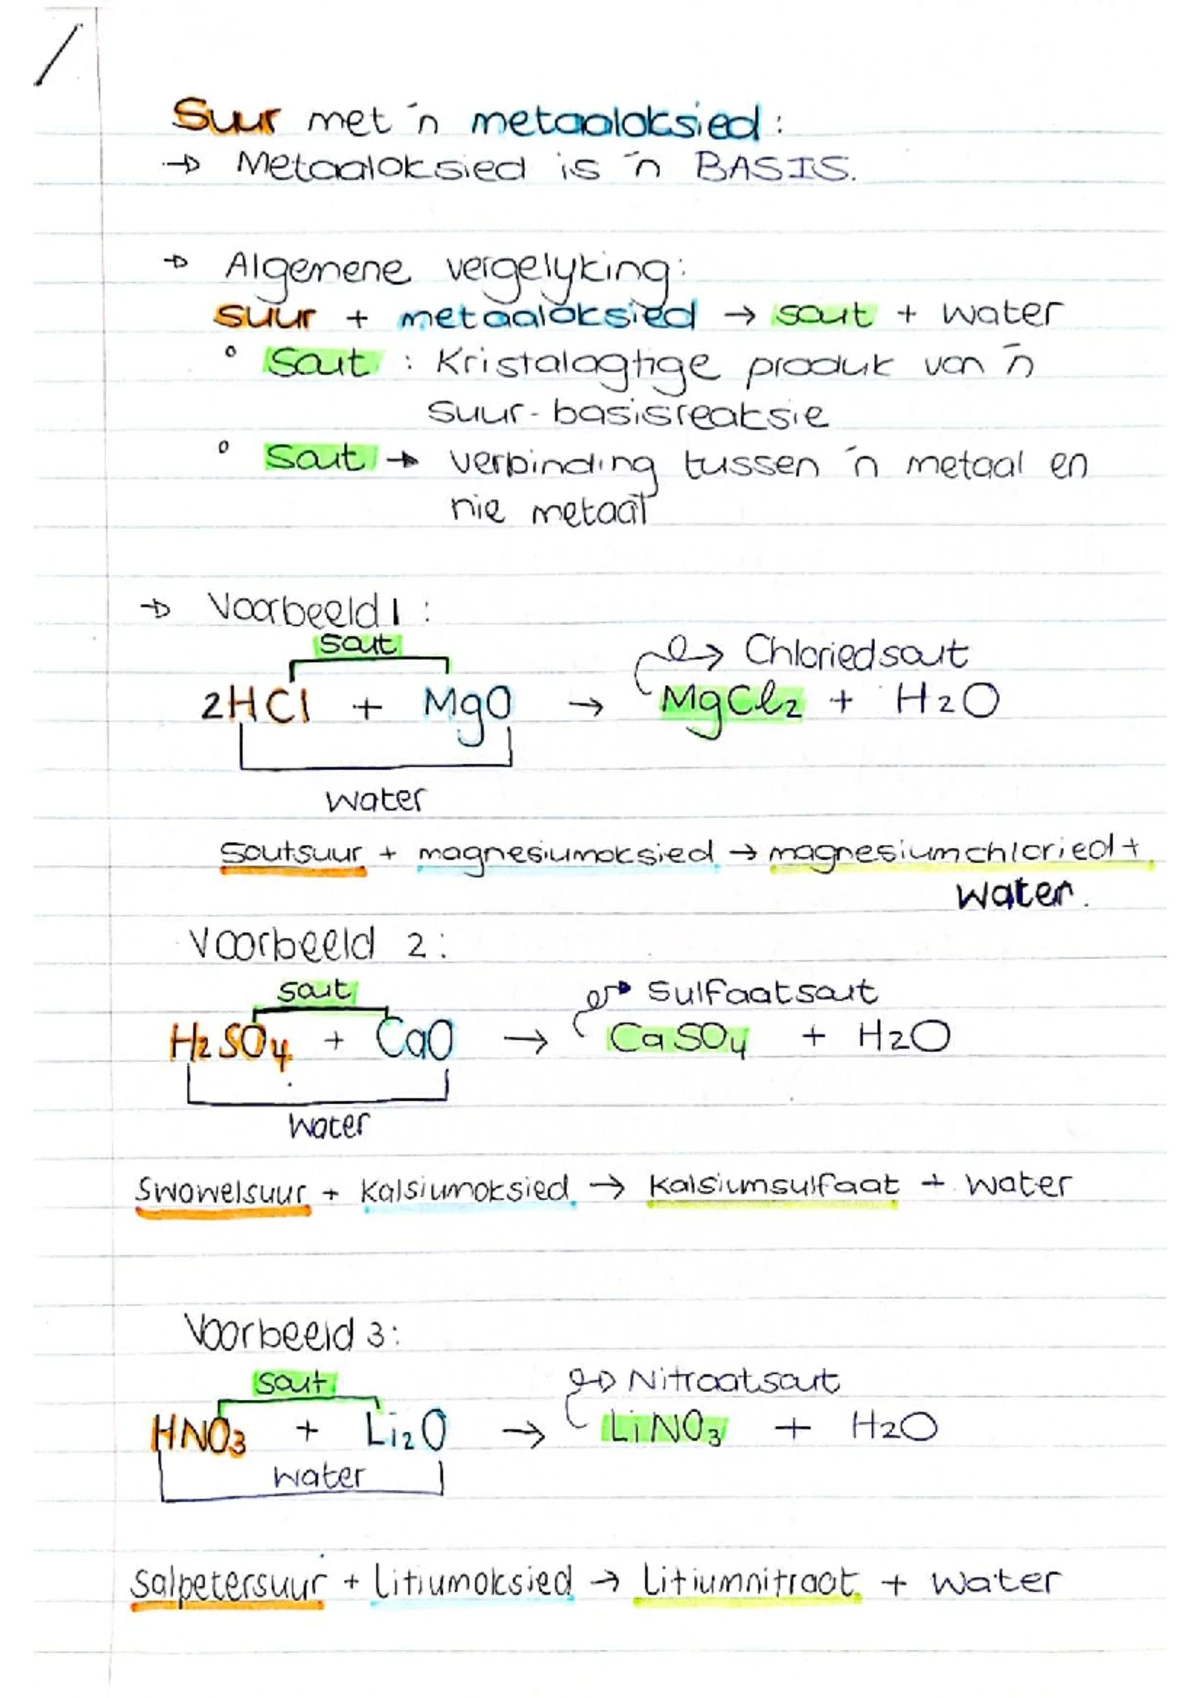 Suur met 'n metaaloksied:
→ Metaaloksied is 'n BASIS.
→ Algemene vergelyking:
suur + metaaloksied → sout + water
° Sout : Kristalagtige produk van 'n
suur-basisreaksie
° Sout → verbinding tussen 'n metaal en
nie metaal
→ Voorbeeld 1:
sout → Chloriedsout
2HCl + MgO → MgCl2 + H2O
water
Soutsuur + magnesiumoksied → magnesiumchloried +
water.
Voorbeeld 2:
sout → Sulfaatsout
H2SO4 + CaO → CaSO4 + H2O
water
Swawelsuur + Kalsiumoksied → Kalsiumsulfaat + water
Voorbeeld 3:
Sout → Nitraatsout
HNO3 + Li2O → LiNO3 + H2O
water
Salpetersuur + Litiumoksied → Litiumnitraat + water